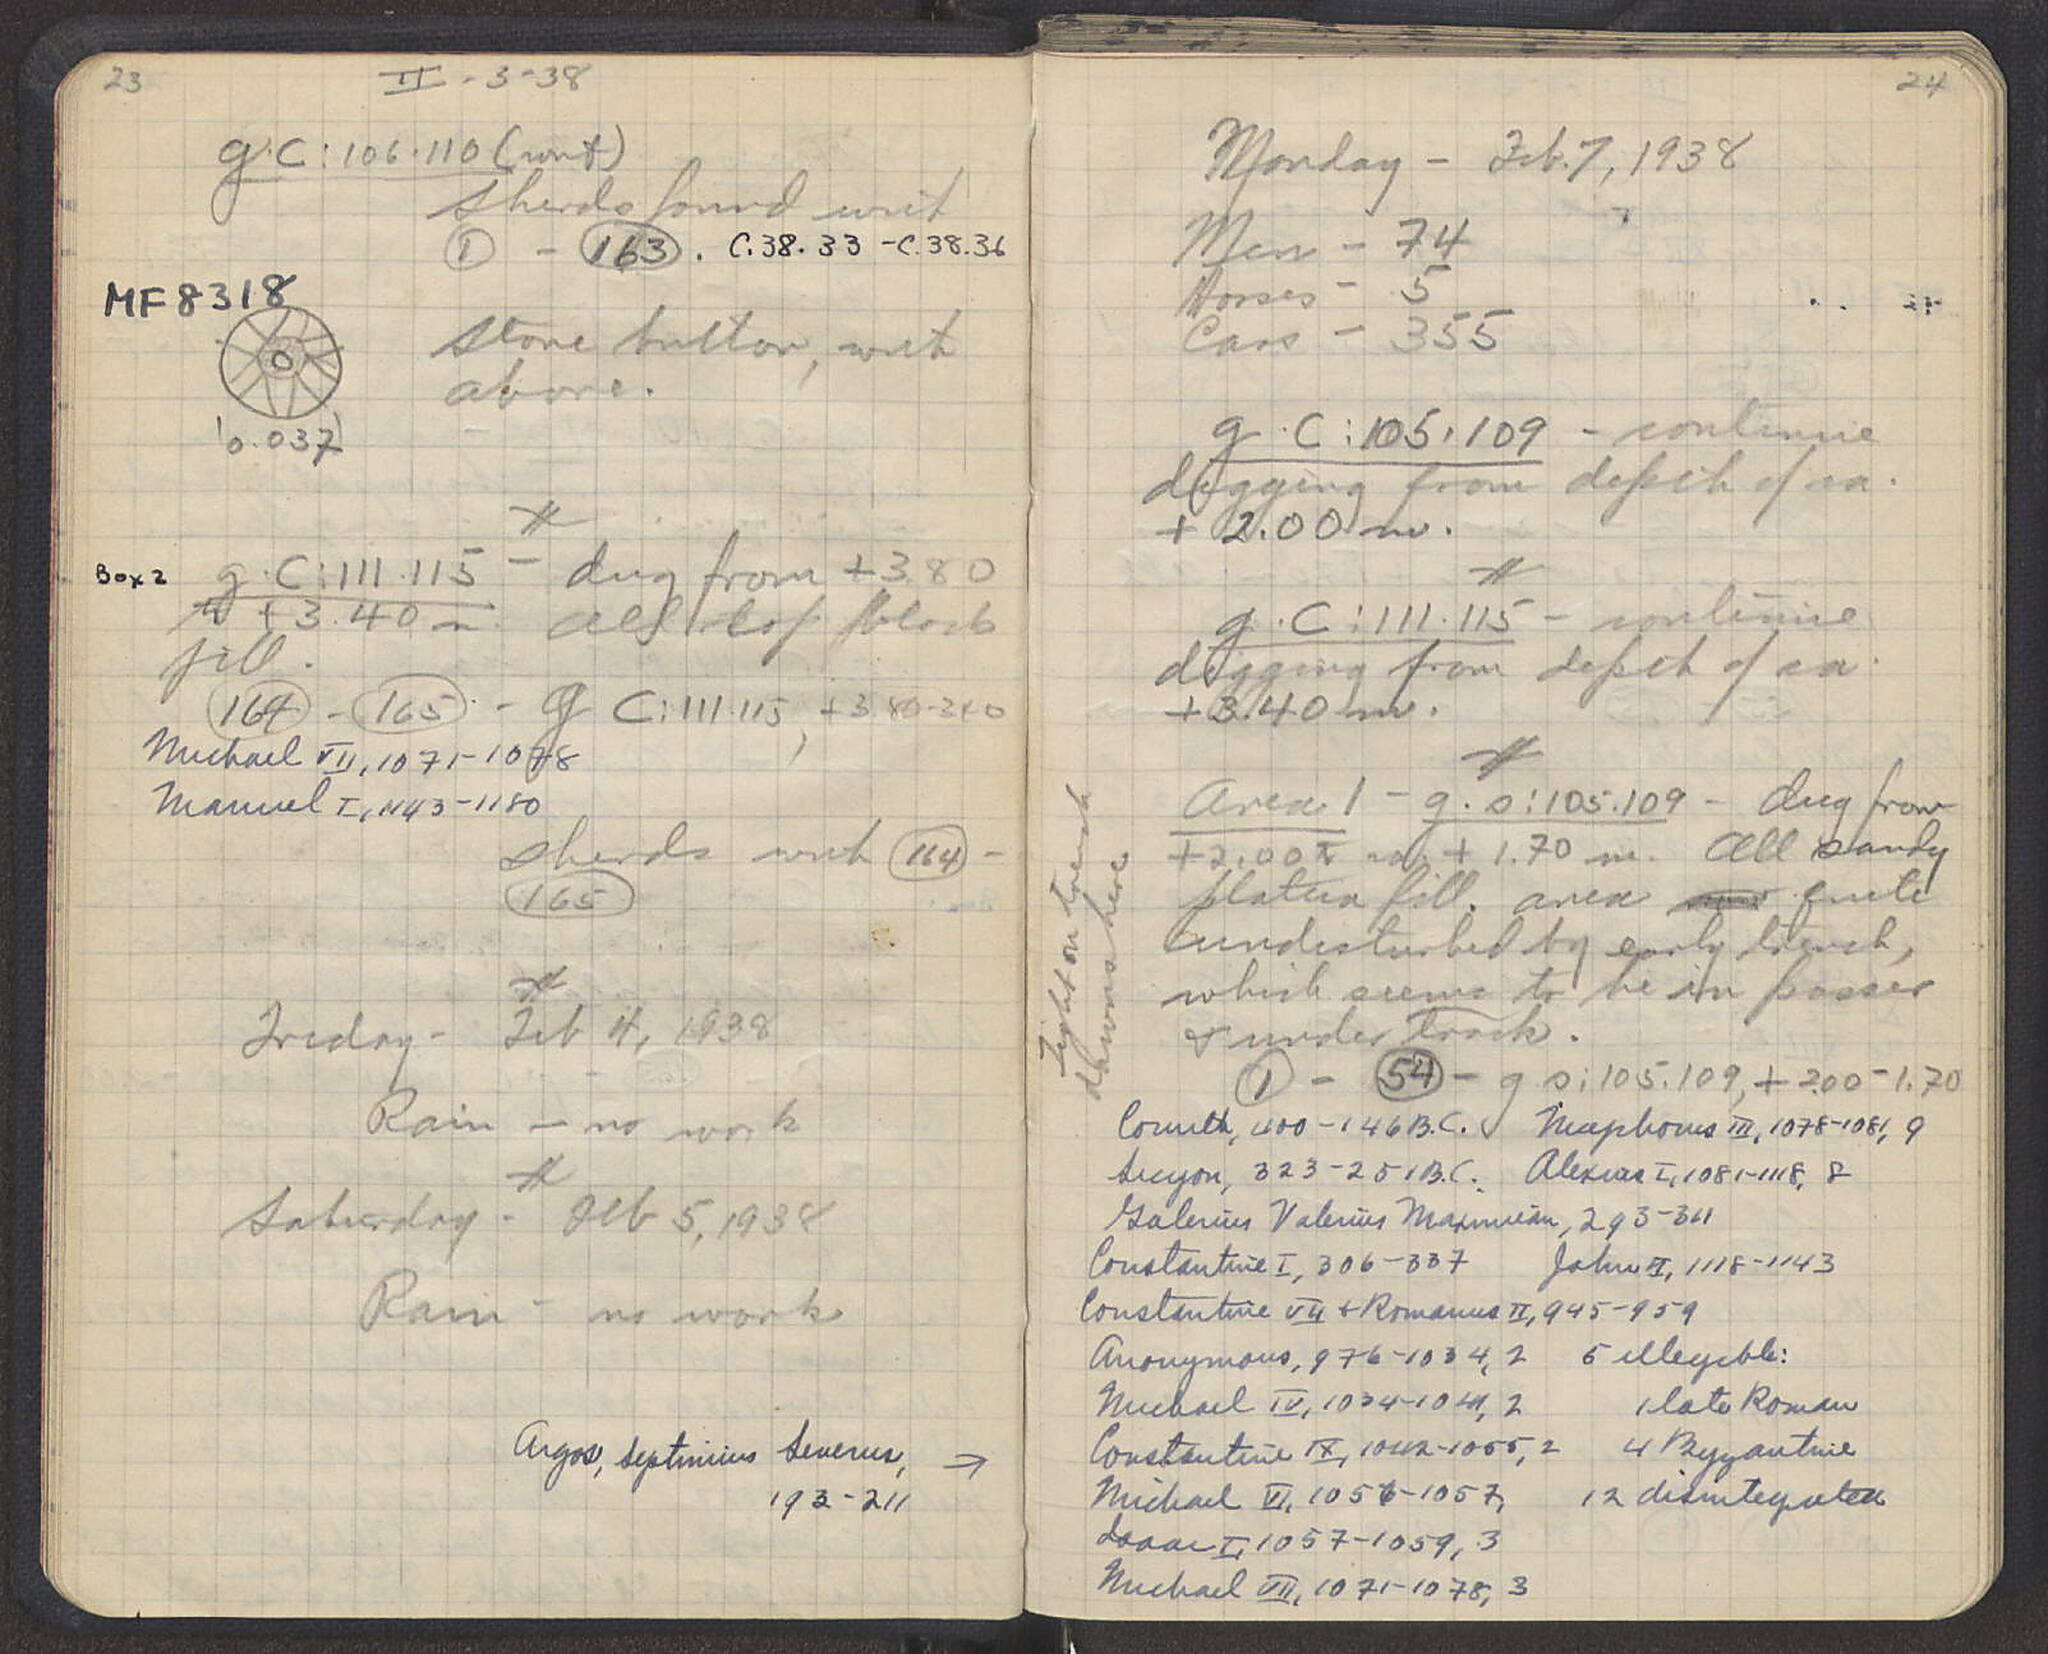 23
II - 3-38
g. C: 106.110 (cont)
Sherds found with
1 - 163. C.38.33 - C.38.36
MF 8318
Stone button, with
above.
0.037
Box 2
g. C: 111.115 - dug from +3.80
to +3.40 m. All top black
fill.
164 - 165 - g C: 111.115, +3.80-3.40
Michael VII, 1071-1078
Manuel I, 1143-1180
sherds with 164 -
165
Friday - Feb 4, 1938
Rain - no work
Saturday - Feb 5, 1938
Rain - no work
Argos, Septimius Severus, →
193-211
24
Monday - Feb. 7, 1938
Men - 74
Horses - 5
Cars - 355
g. C: 105.109 - continue
digging from depth of ca.
+ 2.00 m.
g. C: 111.115 - continue
digging from depth of ca.
+3.40 m.
Area 1 - g. s: 105.109 - dug from
+2.00 to +1.70 m. All sandy
platea fill. area quite
undisturbed by early trench,
which seems to be in
& under track.
trench
here
1 - 54 - g s: 105.109, +2.00-1.70
Corinth, 400-146 B.C. Nicephorus III, 1078-1081, 9
Sicyon, 323-251 B.C. Alexius I, 1081-1118, 8
Galerius Valerius Maximian, 293-311
Constantine I, 306-337 John II, 1118-1143
Constantine VII + Romanus II, 945-959
Anonymous, 976-1034, 2 5 illegible:
Michael IV, 1034-1041, 2 1 late Roman
Constantine IX, 1042-1055, 2 4 Byzantine
Michael VI, 1056-1057, 12 disintegrated
Isaac I, 1057-1059, 3
Michael VII, 1071-1078, 3